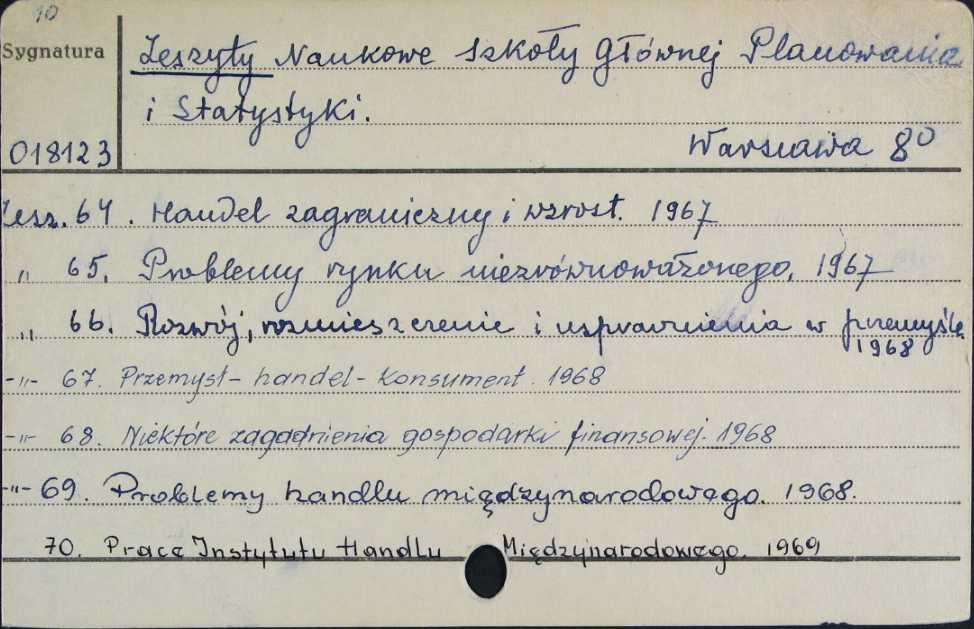 10
Sygnatura
Zeszyty Naukowe Szkoły Głównej Planowania
i Statystyki.
018123
Warszawa 8°
Zesz. 64. Handel zagraniczny i wzrost. 1967
„ 65. Problemy rynku niezrównoważonego. 1967
„ 66. Rozwój, rozmieszczenie i usprawnienia w przemyśle
1968
-„- 67. Przemysł - handel - konsument. 1968
-„- 68. Niektóre zagadnienia gospodarki finansowej. 1968
-„- 69. Problemy handlu międzynarodowego. 1968.
70. Prace Instytutu Handlu Międzynarodowego. 1969